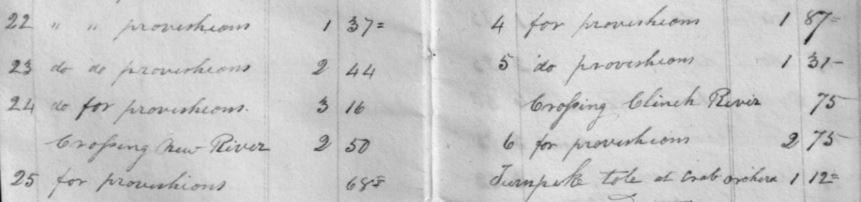 22 " " provisheans 1 37=
23 do do provisheans 2 44
24 do for provisheans 3 16
Crossing New River 2 50
25 for provishians 68=
4 for provisheans 1 87=
5 do provisheans 1 31-
Crossing Clinch River 75
6 for provisheans 2 75
Turnpik tole at Crab orchra 1 12=